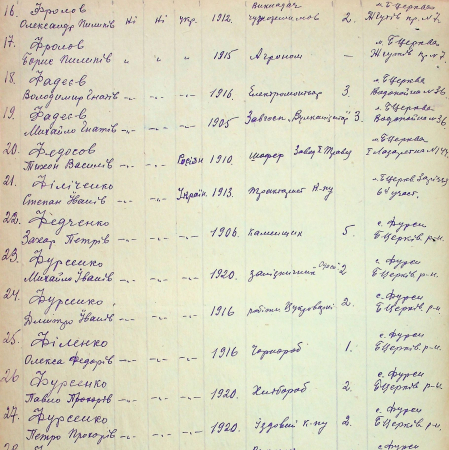 16. Фролов викладач м. Б Церква
Олександр Пилипів Ні Ні укр. 1912. чужоземмов 2. Жовтів пр. № 7.
17. Фролов м. Б Церква
Борис Пилипів " " " 1915 Агроном — Жовтів пр. № 7.
18. Фадеєв м. Б Церква
Володимир Гнатів 1916. Електромонтер 3. Водопойна № 36
19. Фадеєв м. Б Церква
Михайло Гнатів 1905 Завгосп. 3. Водопойна № 36.
20. Федосов м. Б Церква
Тихон Васил&#39;ів Росіян 1910. шофер Завод
21. Філіченко м. Б Церква
Степан Іванів Україн. 1913. Тракторист 6й участ.
22. Федченко с. Фурси
Захар Петрів 1906. каменщик 5. Б Церків р-н.
23. Фурсенко с. Фурси
Михайло Іванів 1920. залізничник 2 Б Церків р-н.
24. Фурсенко. с. Фурси
Дмитро Іванів 1916 робітн Цукроварні 2. Б Церків р-н.
25. Філенко с. Фурси
Олекса Федорів 1916 Чорнороб 1. Б Церків р-н.
26 Фурсенко с. Фурси
Павло Прохорів 1920. Хлібороб 2. Б Церків р-н.
27. Фурсенко с. Фурси
Петро Прохорів 1920. їздовий к-пу 2. Б Церків р-н.